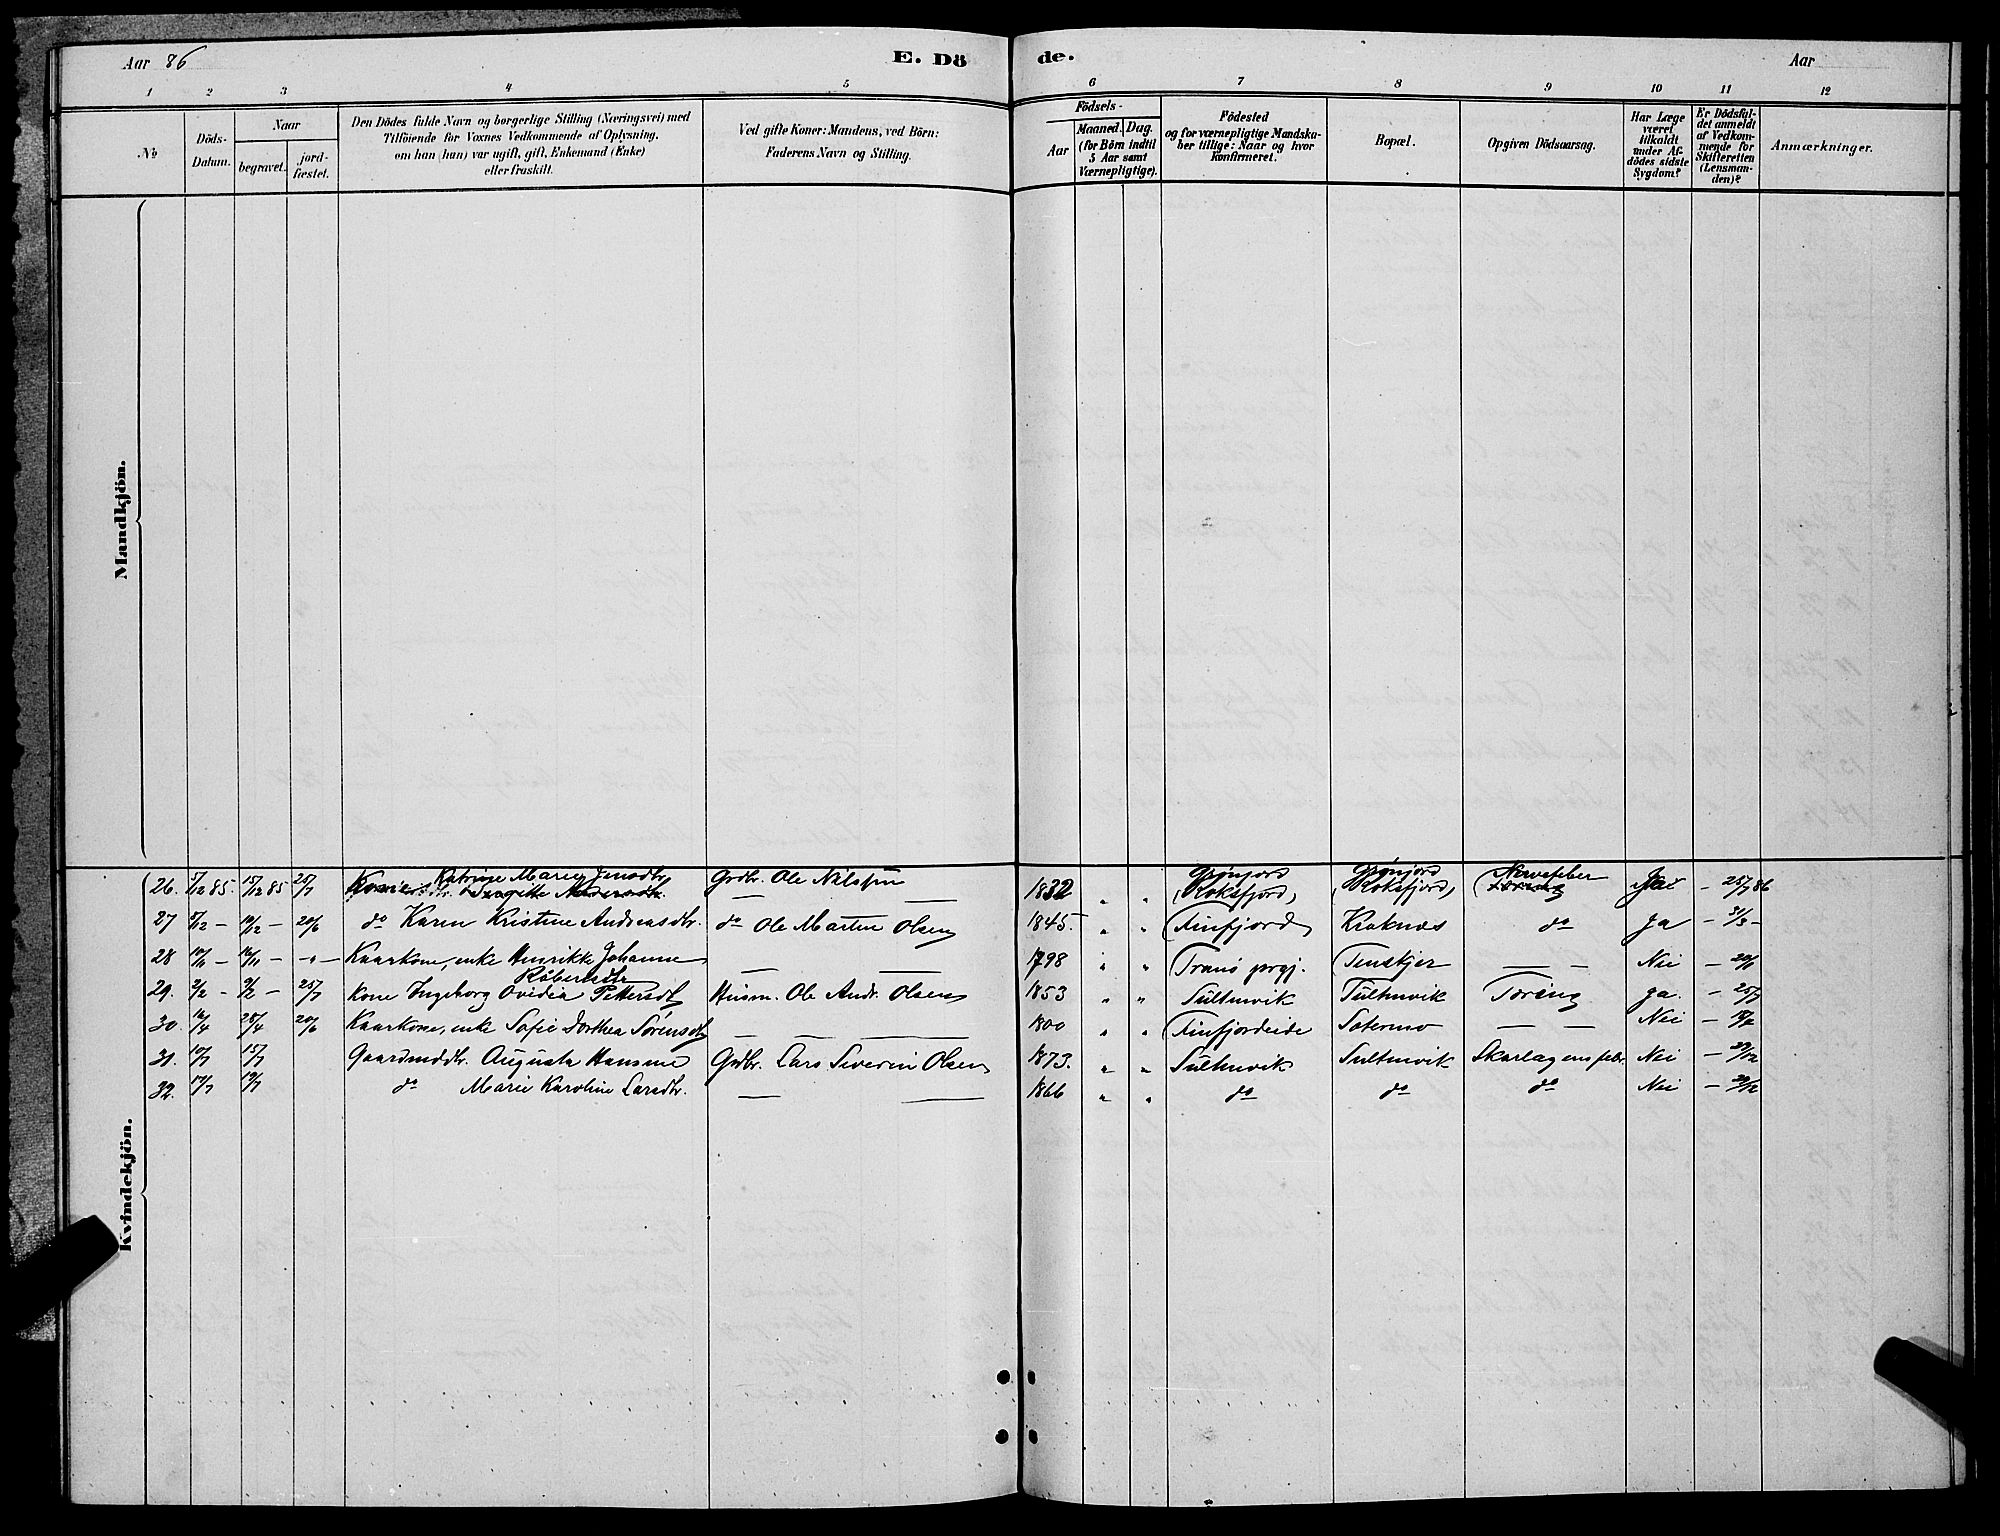 Aar 86 E. Dö de. Aar
1 2 3 4 5 6 7 8 9 10 11 12
No
Döds-Datum.
Naar
begravet.
jord-fæstet.
Den Dödes fulde Navn og borgerlige Stilling (Næringsvei) med
Tilföiende for Voxnes Vedkommende af Oplysning,
om han (hun) var ugift, gift, Enkemand (Enke)
eller fraskilt.
Ved gifte Koner: Mandens, ved Börn:
Faderens Navn og Stilling.
Födsels-
Aar
Maaned. Dag.
(for Börn indtil
5 Aar samt
Værnepligtige).
Födested
og for værnepligtige Mandska-
ber tillige: Naar og hvor
konfirmeret.
Bopæl.
Opgiven Dödsaarsag.
Har Læge
været
tilkaldt
under Af-
dödes sidste
Sygdom?
Er Dödsfal-
det anmeldt
af Vedkom-
mende for
Skifteretten
(Lensman-
den)?
Anmærkninger.
Mandkjön.
Kvindekjön.
Katrine Marie Jensdtr. Grønjord Grønjord Nervefeber
26. 5/12 85. 15/12 85 25/7 Grdbr. Ole Nilssen 1832 " " (Roksfjord) (Roksfjord) Tæring Ja — 25/7 86
27 5/12 — 19/12 — 20/6 do Karen Kristine Andreasdtr. do Ole Martin Olsen 1845 " " Finfjord Kraknæs do Ja — 3/3 —
28 — — — " — Kaarkone, enke Henrikke Johanne — — 1798 " " Tranö prgj. Tenskjer — — Nei — 20/6
Robertsdtr
29. 2/2 — 9/2 — 25/7 Kone Ingeborg Ovidia Pettersdt Husm. Ole Andr. Olsen 1853 " " Sultenvik Sultenvik Tæring Ja. — 25/7
30. 16/4 25/4 20/6 Kaarkone, enke Sofie Dorthea Sörensdt — — 1800 " " Finfjordeide Sætermo — — Nei —
31. 10/7 15/7 Gaardmddtr. Augusta Hansine Grdbr. Lars Severin Olsen 1873. " " Sultenvik Sultenvik Skarlagensfebr. Nei — 29/12
32. 17/7 19/7 do Marie Karoline Larsdtr. — — 1866 " " do do do Nei — 29/12